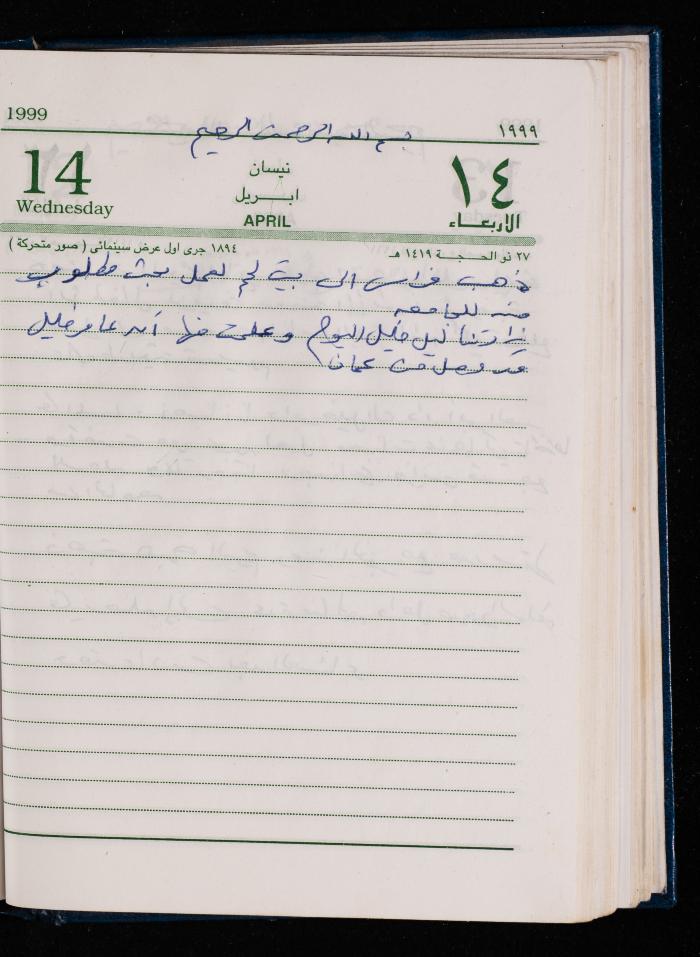 1999
١٩٩٩
بسم الله الرحمن الرحيم
14
نيسان
١٤
Wednesday
ابريل
الاربعاء
APRIL
٢٧ ذو الحجة ١٤١٩ هـ
١٨٩٤ جرى اول عرض سينمائى ( صور متحركة )
ذهب فراس الى بيت لحم لعمل بحث مطلوب
منه للجامعه
زارتنا ليلى خليل اليوم وعلمت منها أنه عامر خليل
قد وصل من عمان